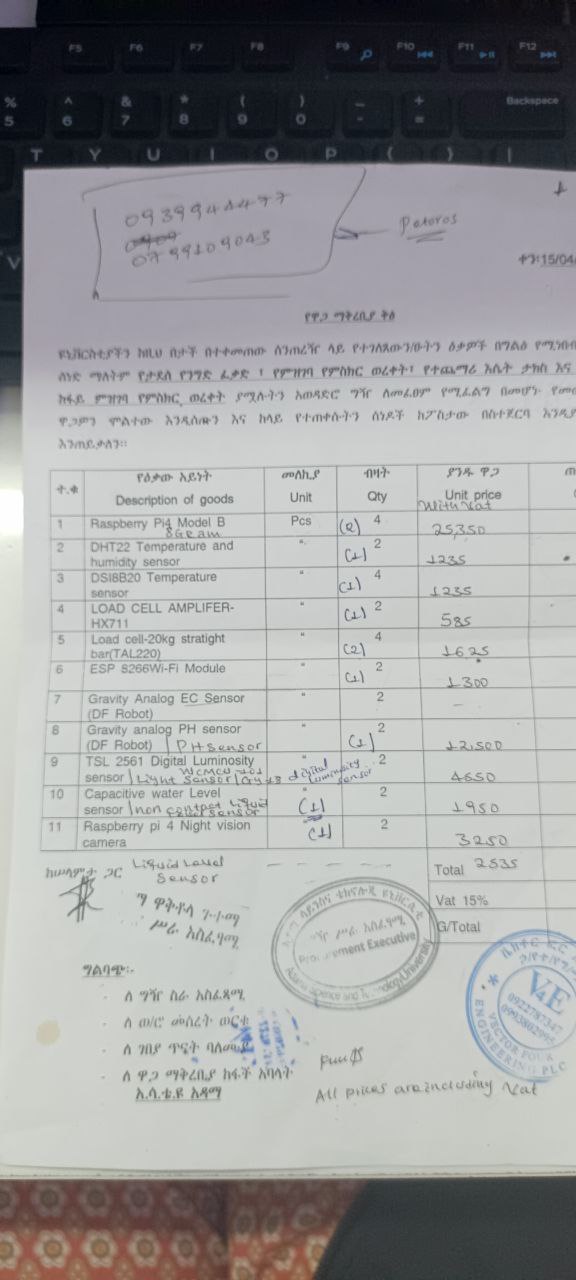 F5 F6 F7 F8 F9 F10 F11 F12
% ^ & * ( ) - + Backspace
5 6 7 8 9 0 - =
T Y U I O P { } |
V
0939944477
0799109043
Petros
ቀን፡15/04/
የዋጋ ማቅረቢያ ቅፅ
ዩኒቨርስቲያችን ከዚህ በታች በተቀመጠው ሰንጠረዥ ላይ የተገለጸውን/ዑትን ዕቃዎች በግልፅ
ሰነድ ማለትም የታደሰ የንግድ ፈቃድ ፣ የምዝገባ የምስክር ወረቀት፣ የተጨማሪ እሴት ታክስ እና
ከፋይ ምዝገባ የምስክር ወረቀት ያሟሉትን አወዳድሮ ግዥ ለመፈፀም የሚፈልግ በመሆኑ
ዋጋምን ሞልተው እንዲሰጡን እና ከላይ የተጠቀሱትን ሰነዶች ከፖስታው በስተጀርባ
እንጠይቃለን፡፡
ተ.ቁ የዕቃው አይነት መለኪያ ብዛት ያንዱ ዋጋ
Description of goods Unit Qty Unit price
With Vat
1 Raspberry Pi4 Model B Pcs (2) 4 25,350
2 DHT22 Temperature and humidity sensor " (1) 2 1235
3 DSI8B20 Temperature sensor " (1) 4 1235
4 LOAD CELL AMPLIFER-HX711 " (1) 2 585
5 Load cell-20kg stratight bar(TAL220) " (2) 4 1625
6 ESP 8266Wi-Fi Module " (1) 2 1300
7 Gravity Analog EC Sensor (DF Robot) " 2 -
8 Gravity analog PH sensor (DF Robot) | PH sensor " (1) 2 12,500
9 TSL 2561 Digital Luminosity sensor | Light sensor digital Luminosity sensor " 2 4650
10 Capacitive water Level sensor | non contact liquid (1) 2 1950
11 Raspberry pi 4 Night vision camera " (1) 2 3250
Liquid Level Sensor
ከሠላምታ ጋር
Total 2535
Vat 15%
G/Total
ሥራ አስፈፃሚ
Procurement Executive
Adama Science and Technology University
V4E
0922787347
VECTOR FOUR ENGINEERING PLC
ግልባጭ፡-
- ለ ግዥ ስራ አስፈጻሚ
- ለ ወ/ሮ መሰረት ወርቁ
- ለ ገበያ ጥናት ባለሙያ
- ለ ዋጋ ማቅረቢያ ከፋች አባላት
አ.ሳ.ቴ.ዩ አዳማ
All prices are including Vat